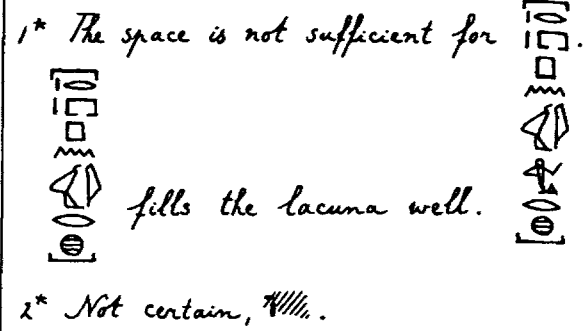 1* The space is not sufficient for .
fills the lacuna well.
2* Not certain, .